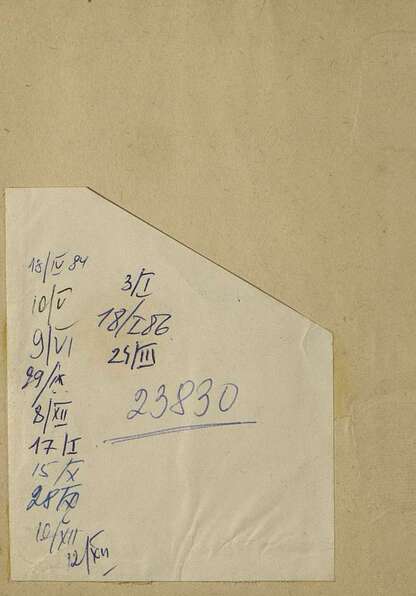 18/IV 84
10/V
9/VI
29/IX
8/XII
17/I
15/X
28/XI
10/XII
12/XII
3/I
18/I 86
25/III
23830